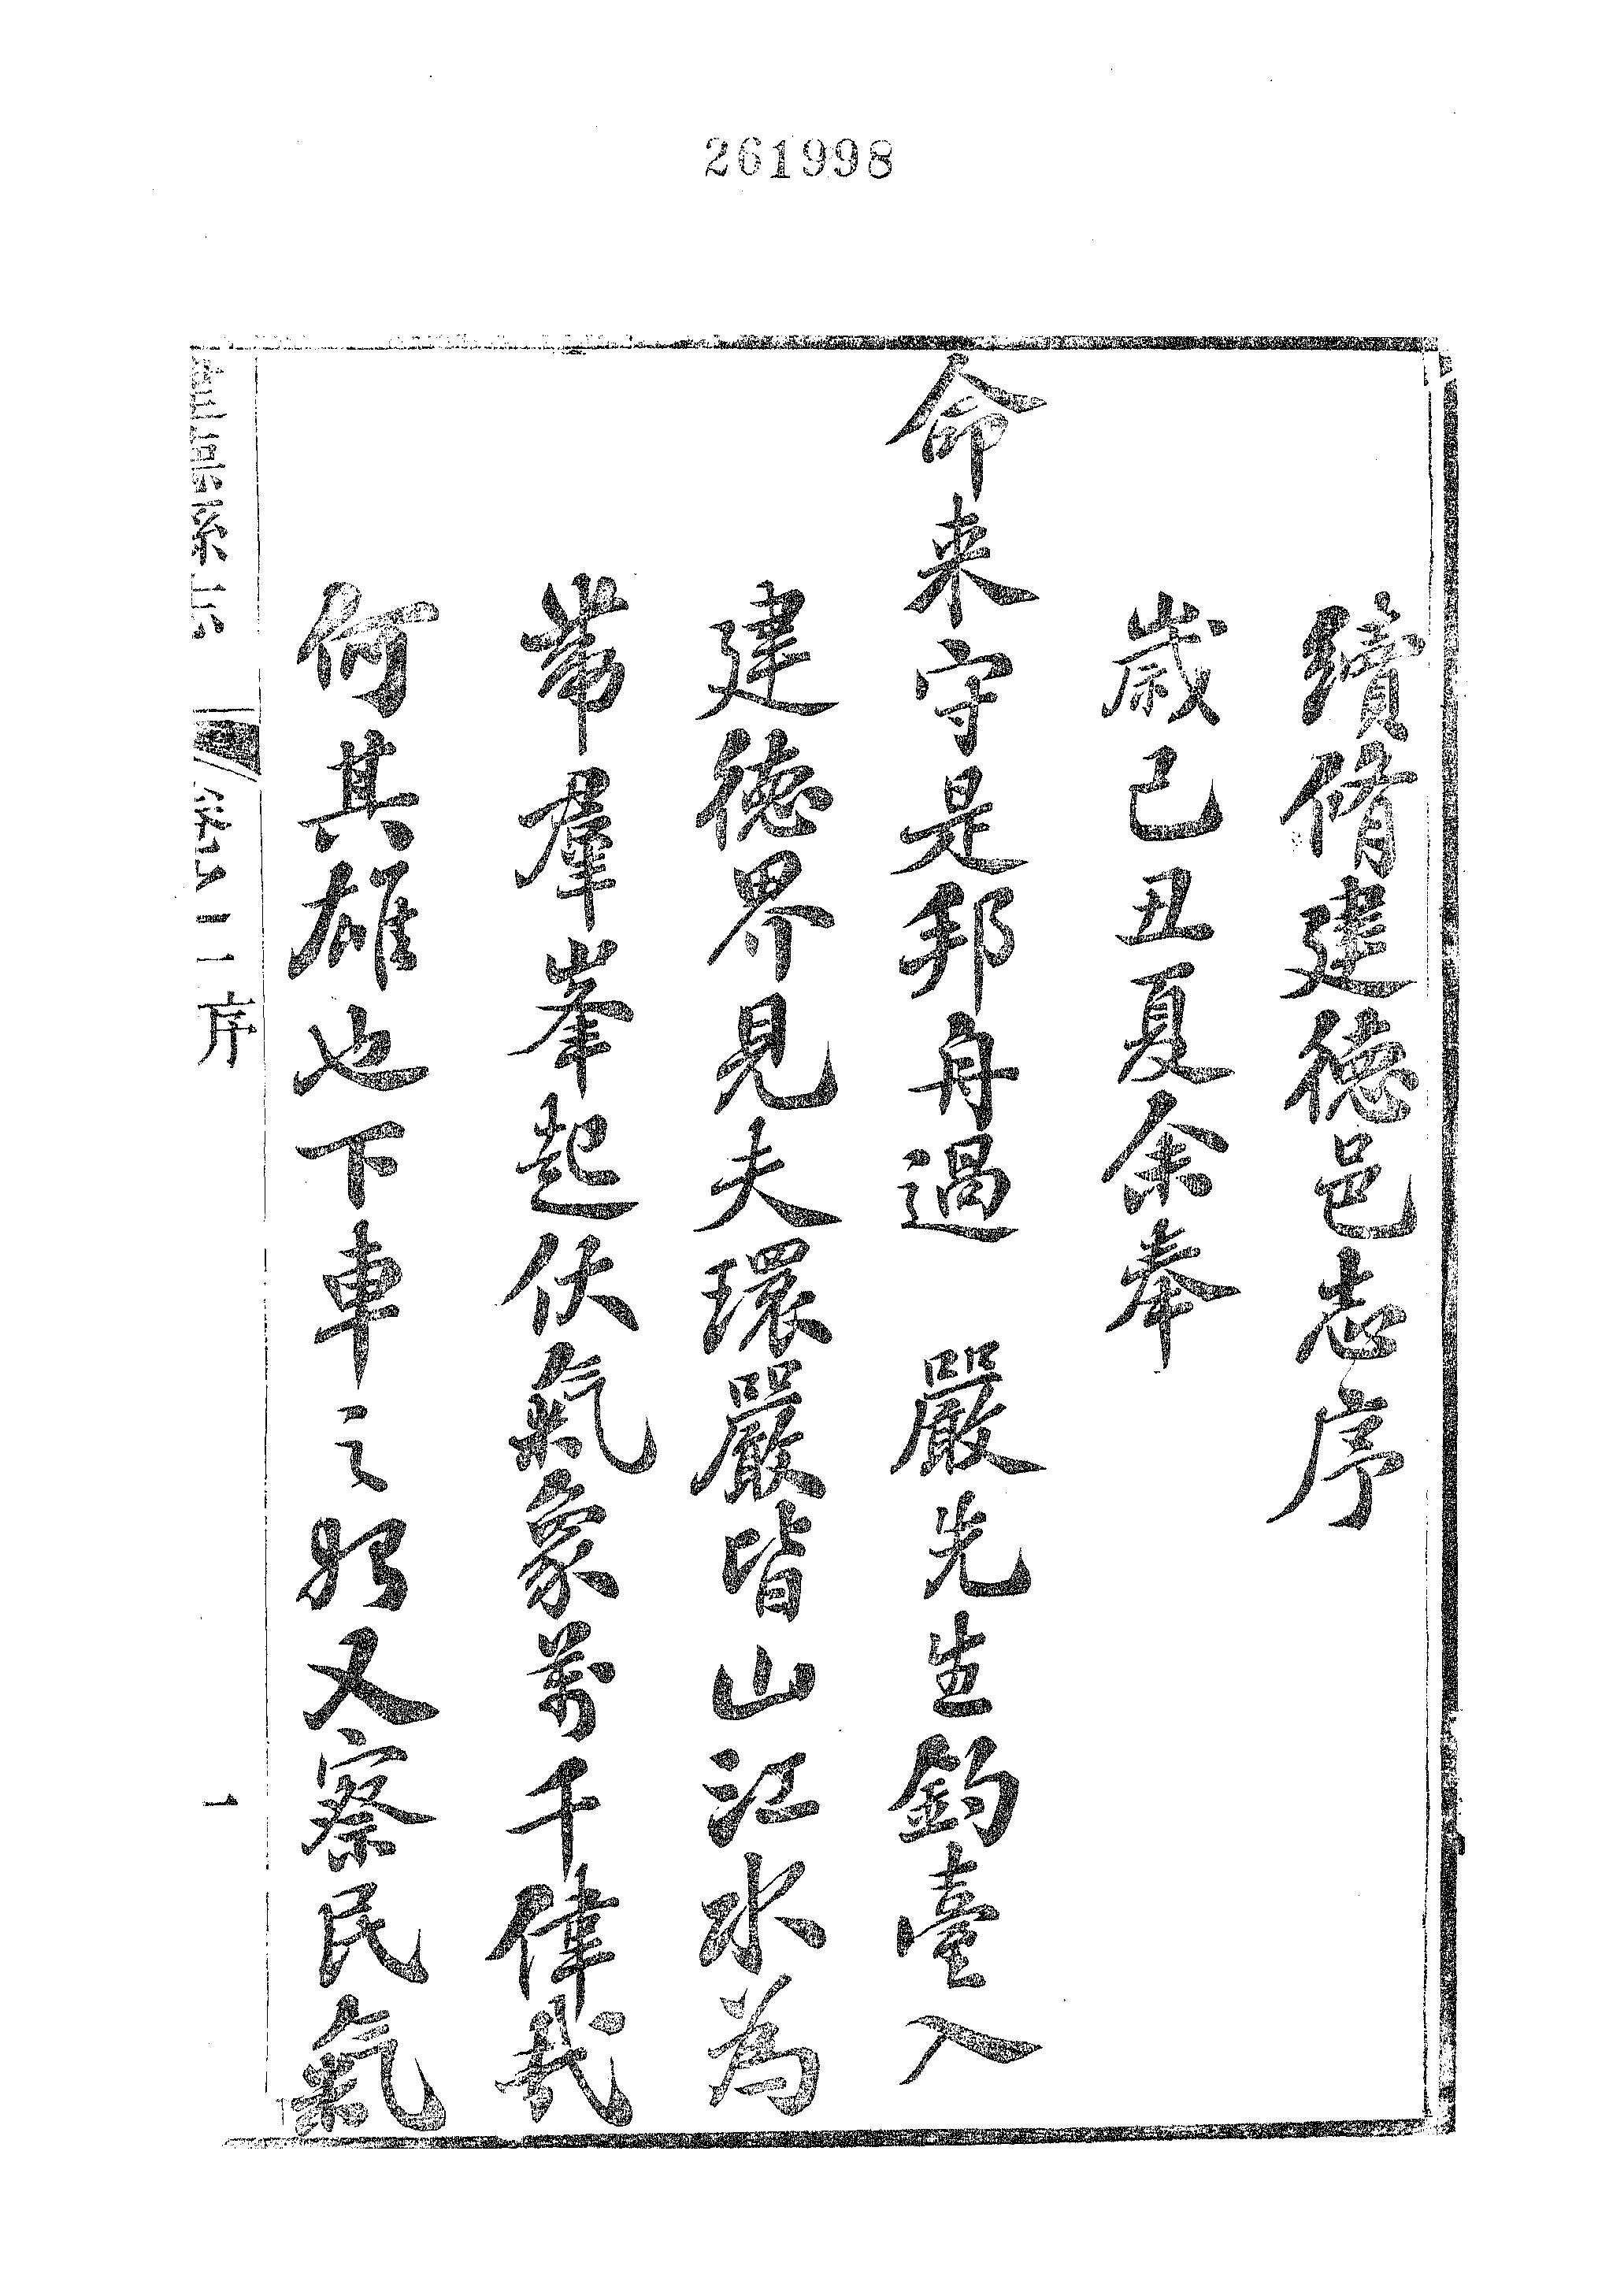 261998
續脩建德邑志序
歲己丑夏余奉
命来守是邦舟過 嚴先生釣臺入
建德界見夫環嚴皆山江水為
帶羣峯起伏氣象萬千偉哉
何其雄也下車之始又察民氣
建德縣志 卷之一 序 一